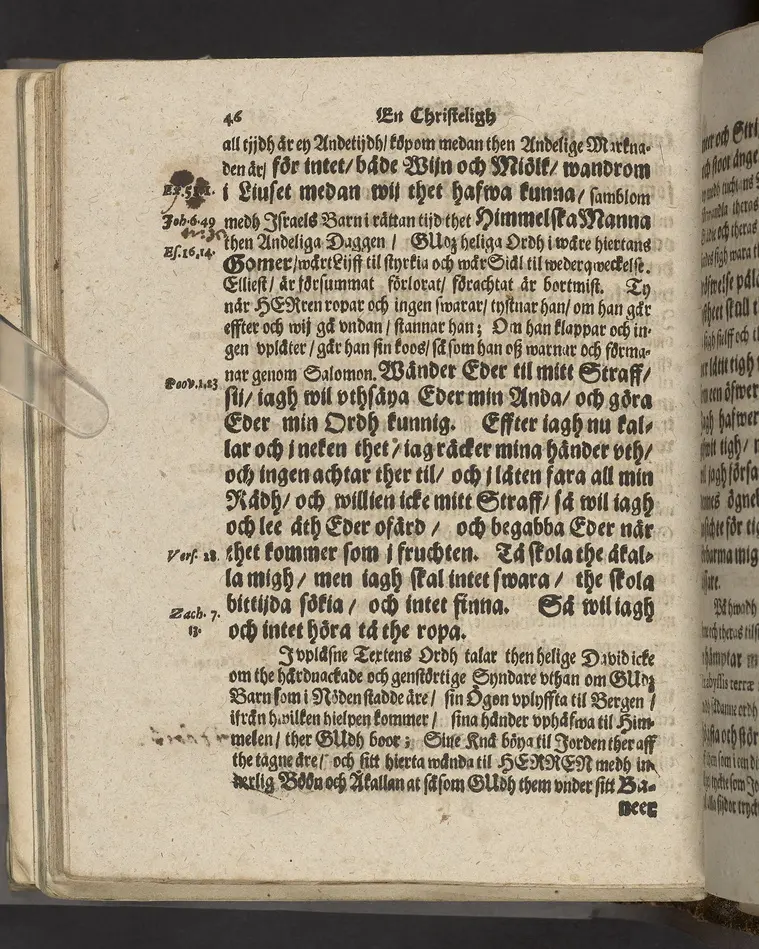 46 En Christeligh
all tijdh är ey Andetijdh/ köpom medan then Andelige Markna-
den är/ för intet/ både Wijn och Miölk/ wandrom
i Liuset medan wij thet hafwa kunna/ samblom
Joh. 6. 49 medh Israels Barn i rättan tijd thet Himmelska Manna
then Andeliga Daggen / GUdz heliga Ordh i wåre hiertans
Es. 16, 14.
Gomer/ wårt Lijff til styrkia och wår Siäl til wederqweckelse.
Elliest/ är försummat förlorat/ förachtat är bortmist. Ty
når HERren ropar och ingen swarar/ tystnar han/ om han går
effter och wij gå undan/ stannar han; Om han klappar och in-
gen upläter/ går han sin koos/ så som han oß warnar och förma-
Prov. 1. 23 nar genom Salomon. Wänder Eder til mitt Straff/
sij/ iagh wil uthsäya Eder min Anda/ och göra
Eder min Ordh kunnig. Effter iagh nu kal-
lar och i neken thet/ iag räcker mina händer uth/
och ingen achtar ther til/ och i låten fara all min
Rådh/ och willien icke mitt Straff/ så wil iagh
och lee åth Eder ofärd / och begabba Eder når
Vers. 28. thet kommer som i fruchten. Tå skola the åkal-
la migh/ men iagh skal intet swara/ the skola
bittijda sökia/ och intet finna. Så wil iagh
Zach. 7. 13. och intet höra tå the ropa.
I upläsne Textens Ordh talar then helige David icke
om the hårdnackade och genstörtige Syndare uthan om GUdz
Barn som i Nöden stadde äre/ sin Ögon uplyffta til Bergen /
ifrån hwilken hielpen kommer/ sina händer uphäfwa til Him-
melen/ ther GUdh boor; Sine Knä böya til Jorden ther aff
the tagne äre/ och sitt hierta wända til HERREN medh in-
nerlig Böön och Åkallan at så som GUdh them under sitt Ba-
neer